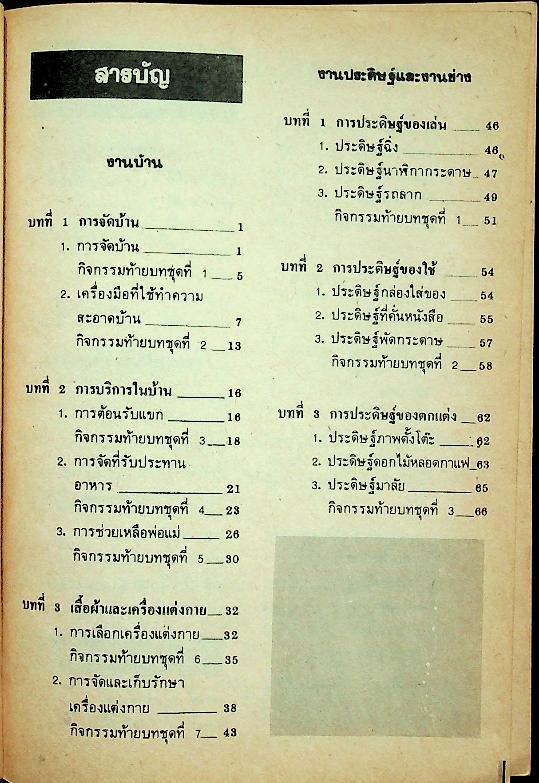 สารบัญ
งานบ้าน
บทที่ 1 การจัดบ้าน 1
1. การจัดบ้าน 1
กิจกรรมท้ายบทชุดที่ 1 5
2. เครื่องมือที่ใช้ทำความ
สะอาดบ้าน 7
กิจกรรมท้ายบทชุดที่ 2 13
บทที่ 2 การบริการในบ้าน 16
1. การต้อนรับแขก 16
กิจกรรมท้ายบทชุดที่ 3 18
2. การจัดที่รับประทาน
อาหาร 21
กิจกรรมท้ายบทชุดที่ 4 23
3. การช่วยเหลือพ่อแม่ 26
กิจกรรมท้ายบทชุดที่ 5 30
บทที่ 3 เสื้อผ้าและเครื่องแต่งกาย 32
1. การเลือกเครื่องแต่งกาย 32
กิจกรรมท้ายบทชุดที่ 6 35
2. การจัดและเก็บรักษา
เครื่องแต่งกาย 38
กิจกรรมท้ายบทชุดที่ 7 43
งานประดิษฐ์และงานช่าง
บทที่ 1 การประดิษฐ์ของเล่น 46
1. ประดิษฐ์ฉิ่ง 46
2. ประดิษฐ์นาฬิกากระดาษ 47
3. ประดิษฐ์รถลาก 49
กิจกรรมท้ายบทชุดที่ 1 51
บทที่ 2 การประดิษฐ์ของใช้ 54
1. ประดิษฐ์กล่องใส่ของ 54
2. ประดิษฐ์ที่คั่นหนังสือ 55
3. ประดิษฐ์พัดกระดาษ 57
กิจกรรมท้ายบทชุดที่ 2 58
บทที่ 3 การประดิษฐ์ของตกแต่ง 62
1. ประดิษฐ์ภาพตั้งโต๊ะ 62
2. ประดิษฐ์ดอกไม้หลอดกาแฟ 63
3. ประดิษฐ์มาลัย 65
กิจกรรมท้ายบทชุดที่ 3 66